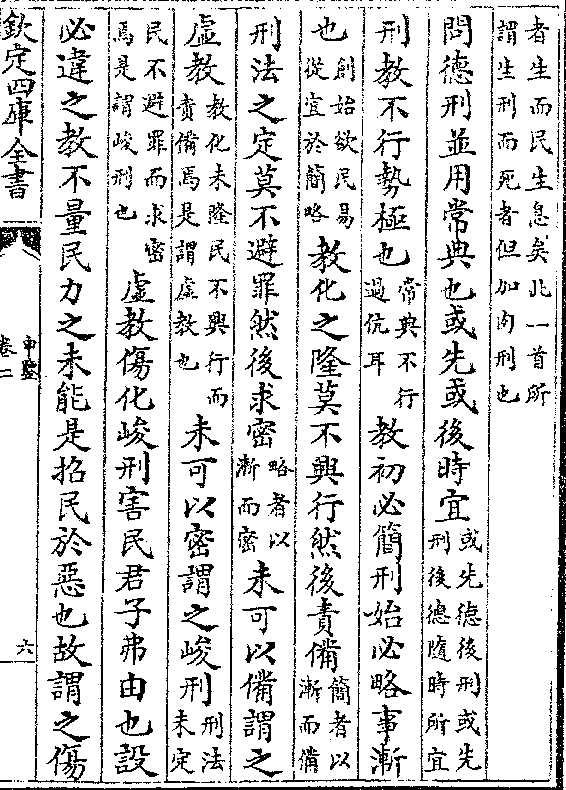 者生而民生息矣此一首所
謂生刑而死者但加肉刑也
問德刑並用常典也或先或後時宜或先德後刑或先刑後德隨時所宜
刑教不行勢極也常典不行過伉耳教初必簡刑始必略事漸
也創始欲民易從宜於簡略教化之隆莫不興行然後責備簡者以漸而備
刑法之定莫不避罪然後求密略者以漸而密未可以備謂之
虛教教化未隆民不興行而責備焉是謂虛教也未可以密謂之峻刑刑法未定
民不避罪而求密焉是謂峻刑也虛教傷化峻刑害民君子弗由也設
必違之教不量民力之未能是招民於惡也故謂之傷
欽定四庫全書
申鑒
卷二
六